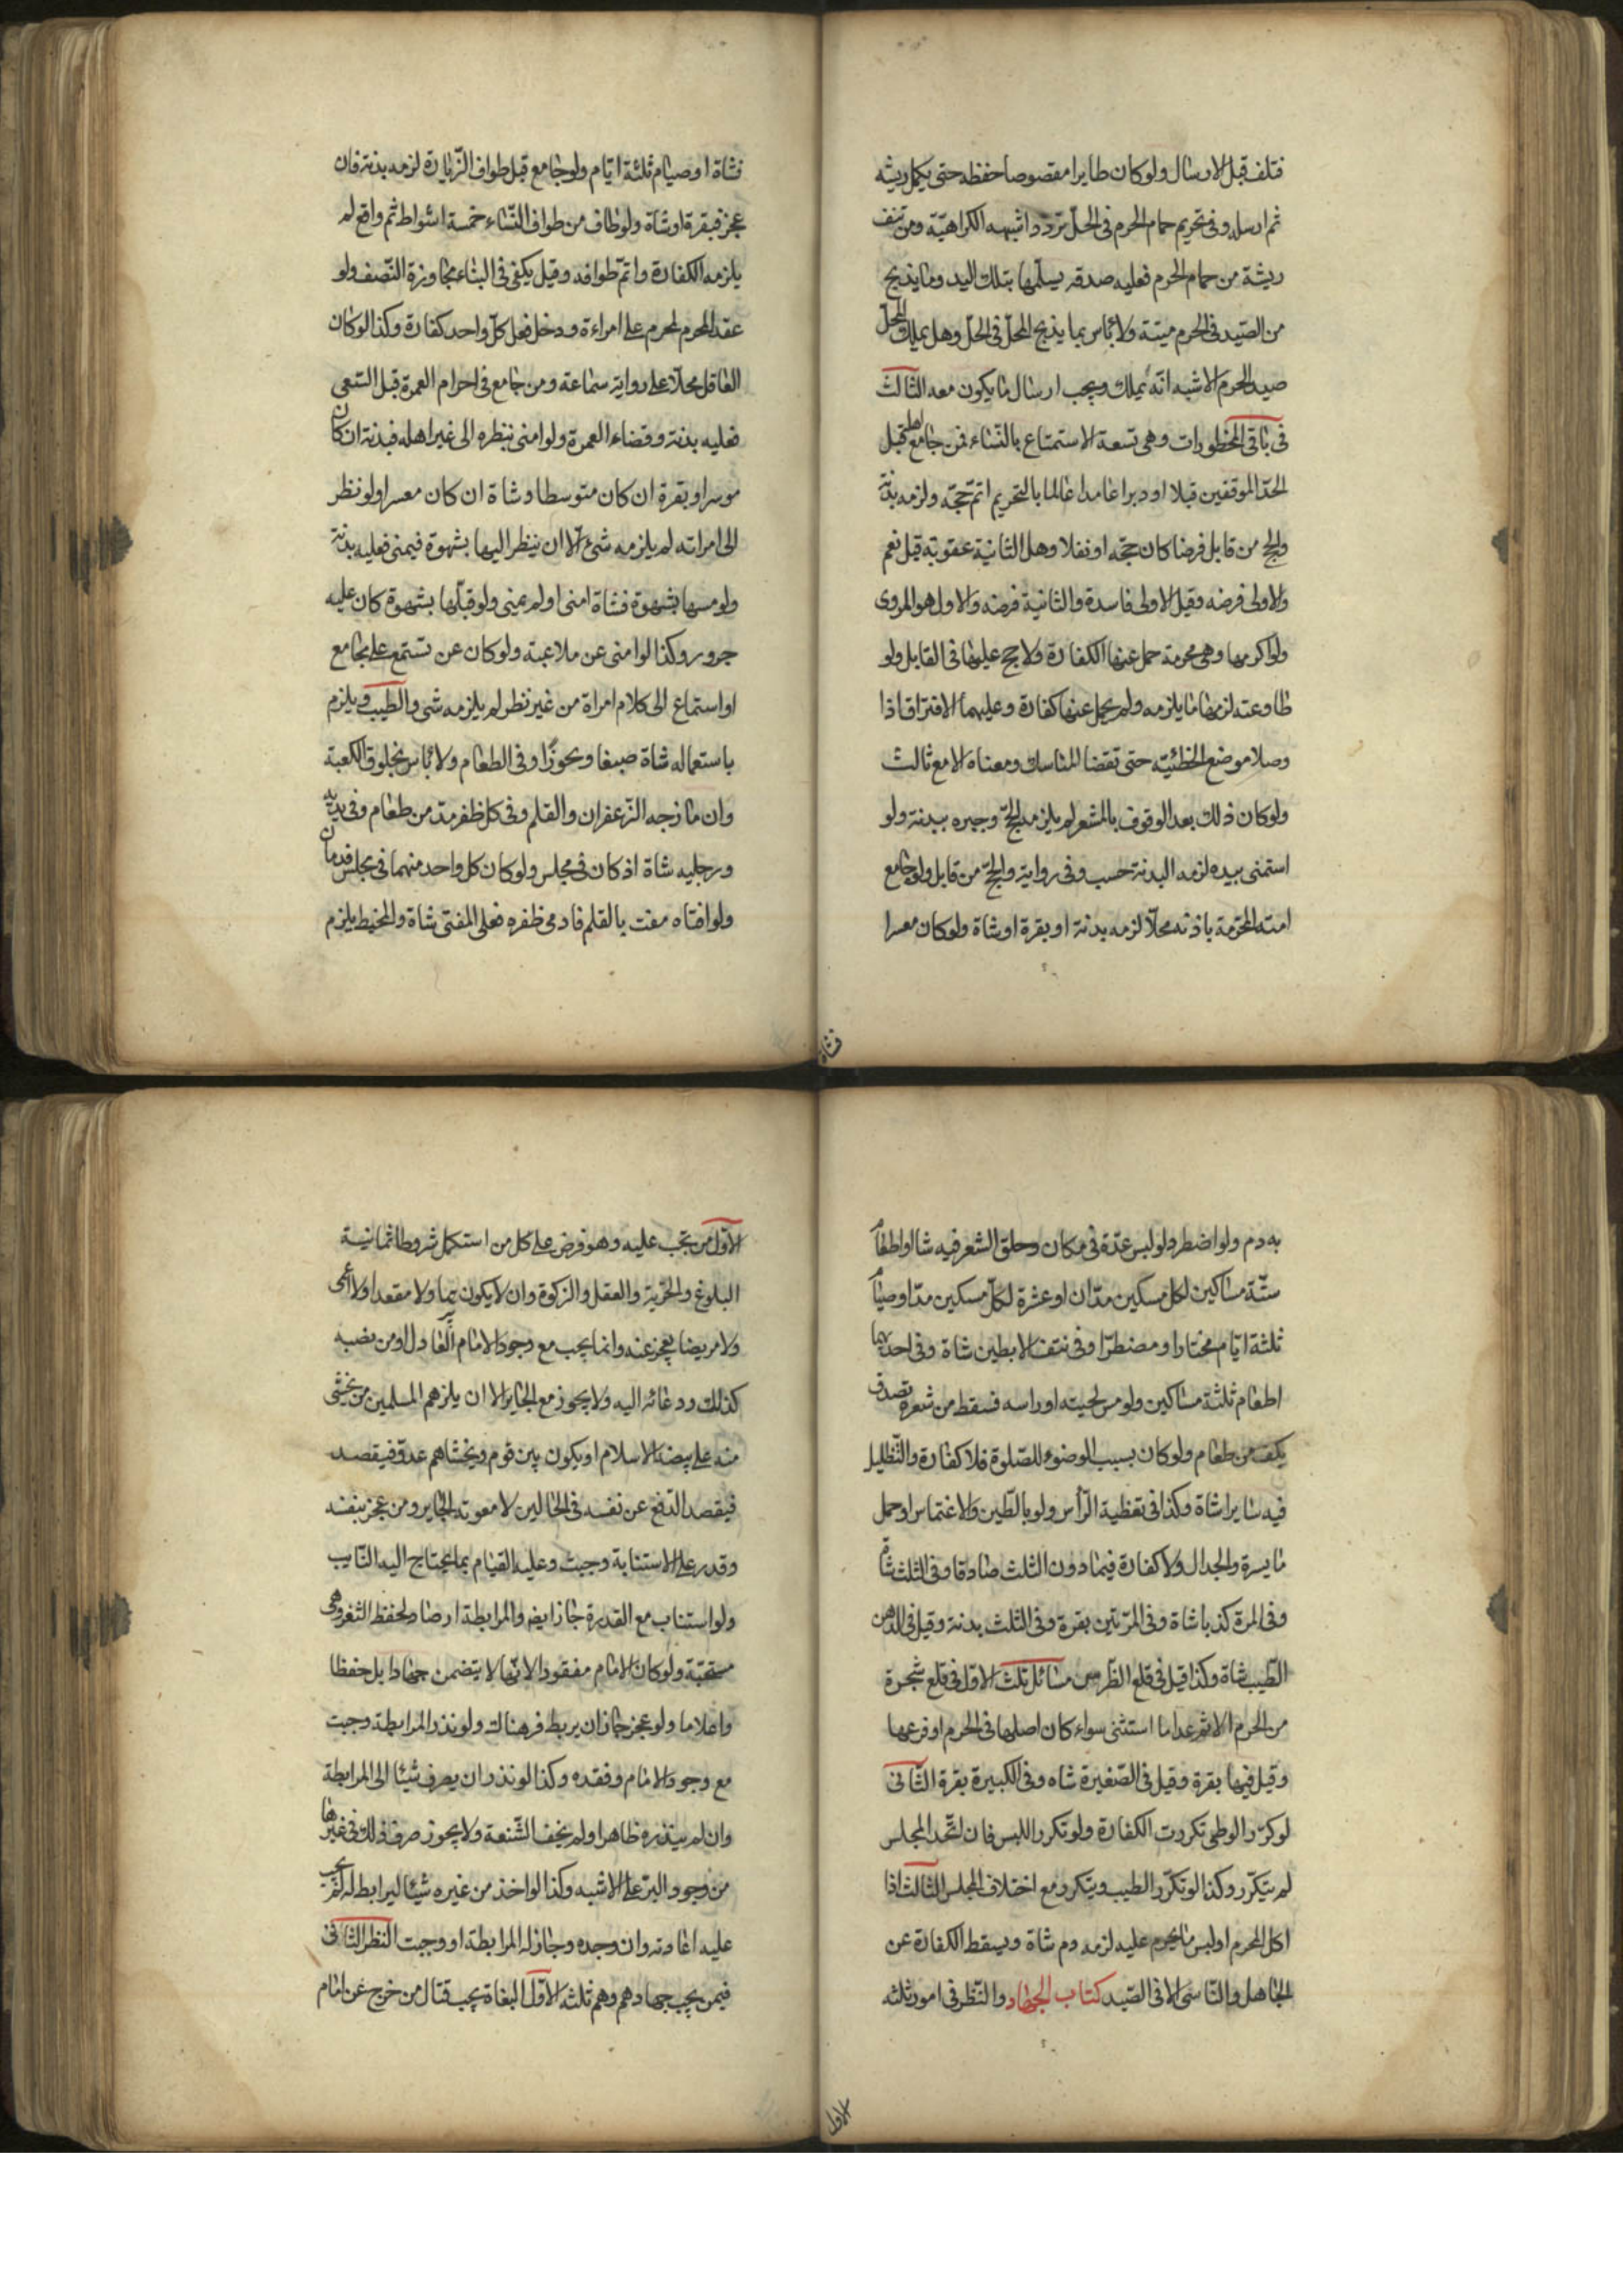 فتلف قبل الارسال ولو كان طايرا مقصوصا حفظه حتى يكمل ريشه
ثم ارسله وفى تحريم حمام الحرم فى الحلّ تردّد اشبهه الكراهيّة ومن نتف
ريشة من حمام الحرم فعليه صدقه يسلّمها بتلك اليد وما يذبح
من الصّيد فى الحرم ميتة ولا باس بما يذبح المحلّ فى الحلّ وهل يملك المحلّ
صيد الحرم الاشبه انّه يملك ويجب ارسال ما يكون معه الثالث
فى باقى المحظورات وهى تسعة الاستمتاع بالنّساء فمن جامع اهله قبل
احد الموقفين قبلا او دبرا عامدا عالما بالتحريم اتمّ حجّه ولزمه بدنة
والحج من قابل فرضا كان حجّه او نفلا وهل الثانية عقوبة قيل نعم
والاولى فرضه وقيل الاولى فاسدة والثانية فرضه والاول هو المروى
ولو اكرهها وهى محرمة حمل عنها الكفارة ولا حج عليها فى القابل ولو
طاوعته لزمها ما يلزمه ولم يحمل عنها كفارة وعليهما الافتراق اذا
وصلا موضع الخطئية حتى تقضا المناسك ومعناه الا مع ثالث
ولو كان ذلك بعد الوقوف بالمشعر لم يلزمه الحجّ وجبره ببدنة ولو
استمنى بيده لزمه البدنة حسب وفى رواية والحجّ من قابل ولو جامع
امته المحرمة باذنه محلّا لزمه بدنة او بقرة او شاة ولو كان معسرا
فشاة
فشاة او صيام ثلثة ايّام ولو جامع قبل طواف الزّيارة لزمه بدنة فان
عجز فبقرة او شاة ولو طاف من طواف النّساء خمسة اشواط ثم واقع لم
يلزمه الكفارة واتمّ طوافه وقيل يكفى فى البناء مجاوزة النّصف ولو
عقد المحرم لمحرم على امراءة ودخل فعلى كلّ واحد كفارة وكذا لو كان
العاقل محلّا على رواية سماعة ومن جامع فى احرام العمرة قبل السّعى
فعليه بدنة وقضاء العمرة ولو امنى بنظره الى غير اهله فبدنة ان كان
موسرا وبقرة ان كان متوسطا وشاة ان كان معسرا ولو نظر
الى امراته لم يلزمه شئ الّا ان ينظر اليها بشهوة فيمنى فعليه بدنة
ولو مسها بشهوة فشاة امنى او لم يمنى ولو قبّلها بشهوة كان عليه
جزور وكذا لو امنى عن ملاعبة ولو كان عن تستمع على مجامع
او استماع الى كلام امراة من غير نظر لم يلزمه شى والطيب ويلزم
باستعماله شاة صبغا وبحوزًا وفى الطعام ولا باس بخلوق الكعبة
وان مازجه الزّعفران والقلم وفى كل ظفر مدّ من طعام وفى يديه
ورجليه شاة اذ كان فى مجلس ولو كان كل واحد منهما فى مجلس فدمان
ولو افتاه مفت بالقلم فادمى ظفره فعلى المفتى شاة والمخيط يلزم
به دم ولو اضطر ولو لبس عدّة فى مكان وحلق الشعر فيه شا او اطعام
ستّة مساكين لكل مسكين مدّان او عشرة لكلّ مسكين مدّ او صيام
ثلثة ايّام مختارا او مضطرّا وفى نتف الابطين شاة وفى احديهما
اطعام ثلثة مساكين ولو مس لحيته او راسه فسقط من شعره تصدق
بكف من طعام ولو كان بسبب الوضوء للصّلوة فلا كفارة والتّظليل
فيه سايرا شاة وكذا فى تغطية الرّأس ولو بالطّين والاغتماس او حمل
ما يسره والجدال ولا كفارة فيما دون الثلث صادقا وفى الثلث شاة
وفى المرة كذبا شاة وفى المرّتين بقرة وفى الثلث بدنة وقيل فى الدهن
الطّيب شاة وكذا قيل فى قلع الظّرس مسائل ثلث الاوّل فى قلع شجرة
من الحرم الاثم عدا ما استثنى سواء كان اصلها فى الحرم او فرعها
وقيل فيها بقرة وقيل فى الصّغيرة شاه وفى الكبيرة بقرة الثّانى
لو كرّر الوطى تكررت الكفارة ولو تكرر اللبس فان اتّحد المجلس
لم يتكرّر وكذا لو تكرّر الطيب ويتكرر مع اختلاف المجلس الثالث اذا
اكل المحرم او لبس ما يحرم عليه لزمه دم شاة ويسقط الكفارة عن
الجاهل والنّاسى الا فى الصّيد كتاب الجهاد والنّظر فى امور ثلثه
الاوّل
الاوّل من يجب عليه وهو فرض على كل من استكمل شروطا ثمانية
البلوغ والحرّية والعقل والزكوة وان لا يكون همّا ولا مقعدا ولا اعمى
ولا مريضا يعجز عنه وانما يجب مع وجود الامام العادل او من نصبه
كذلك ودعائه اليه ولا يجوز مع الجاير الا ان يلزهم المسلمين من يخشى
منه على بيضة الاسلام او يكون بين قوم ويخشاهم عدوّ فيقصد
فيقصد الدّفع عن نفسه فى الحالين لا معونة الجاير ومن عجز بنفسه
وقدر على الاستنابة وجبت وعليه القيام بما يحتاج اليه النّايب
ولو استناب مع القدرة جاز ايضا والمرابطة ارصاد لحفظ الثغر وهى
مستحبّة ولو كان الامام مفقودا لانّها لا يتضمن جهادا بل حفظا
واعلاما ولو عجز جاز ان يربط فرهنالك ولو نذر المرابطة وجبت
مع وجود الامام وفقده وكذا لو نذر ان يصرف شيئا الى المرابطة
وان لم ينذره ظاهرا ولم يخف الشّنعة ولا يجوز صرف ذلك فى غيرها
من وجوه البرّ على الاشبه وكذا لو اخذ من غيره شيئا ليرابط له لم يجب
عليه اعادته وان وجده وجاز له المرابطة او وجبت النظر الثانى
فيمن يجب جهادهم وهم ثلثه الاوّل البغاة يجب قتال من خرج عن امام